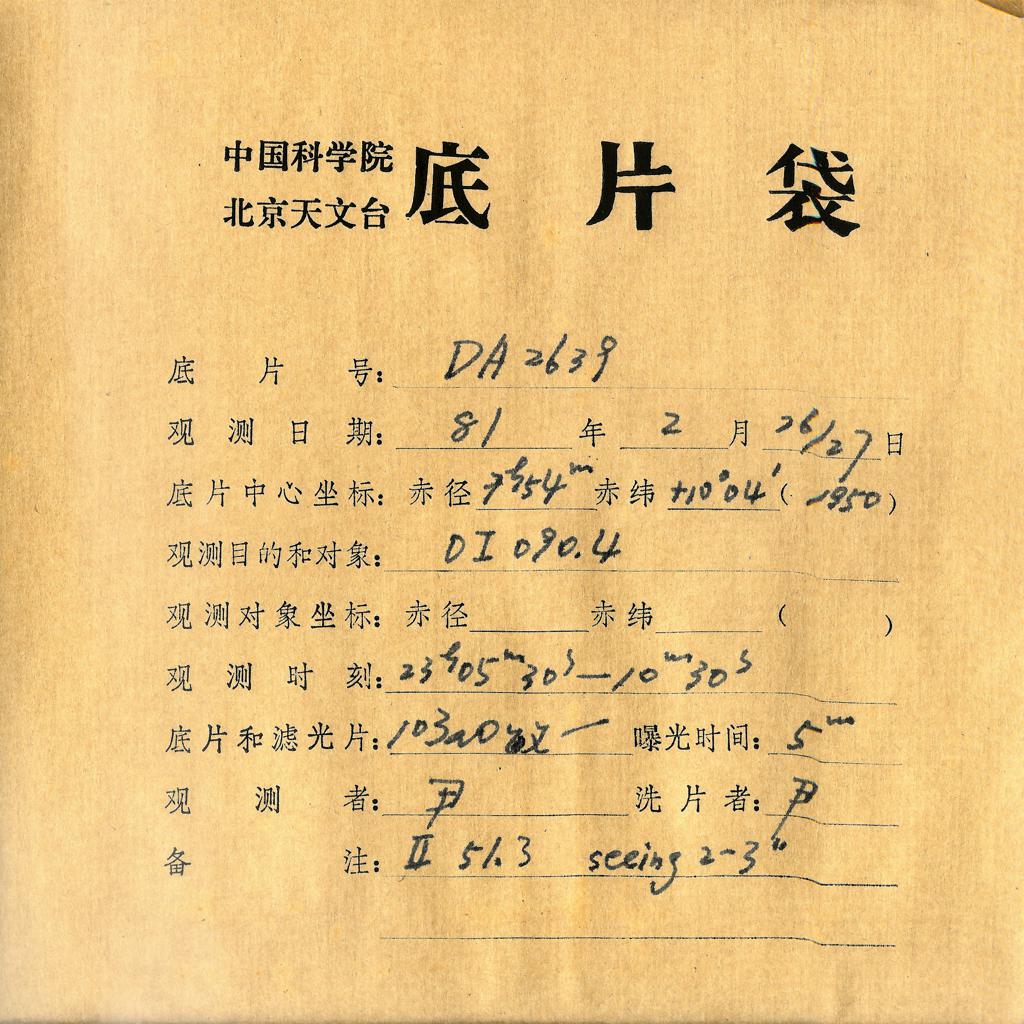 中国科学院
北京天文台 底片袋
底片号: DA 2639
观测日期: 81 年 2 月 26/27 日
底片中心坐标: 赤径 7h54m 赤纬 +10°04′ ( 1950 )
观测目的和对象: DI 090.4
观测对象坐标: 赤径 赤纬 ( )
观测时刻: 23h05m30s — 10m30s
底片和滤光片: 103aO 敏 一 曝光时间: 5m
观测者: 尹 洗片者: 尹
备注: II 51.3 seeing 2-3″